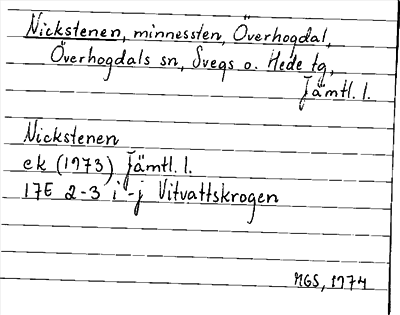 Nickstenen, minnessten, Överhogdal,
Överhogdals sn, Svegs o. Hede tg,
Jämtl. l.
Nickstenen
ek (1973) Jämtl. l.
17E 2-3 i-j Vitvattskrogen
MGS, 1974